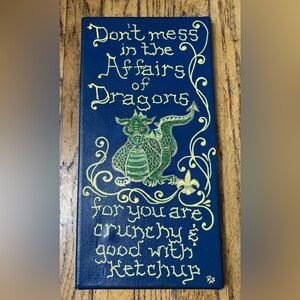 Don't mess
in the
Affairs
of
Dragons
for you are
crunchy &
good with
ketchup